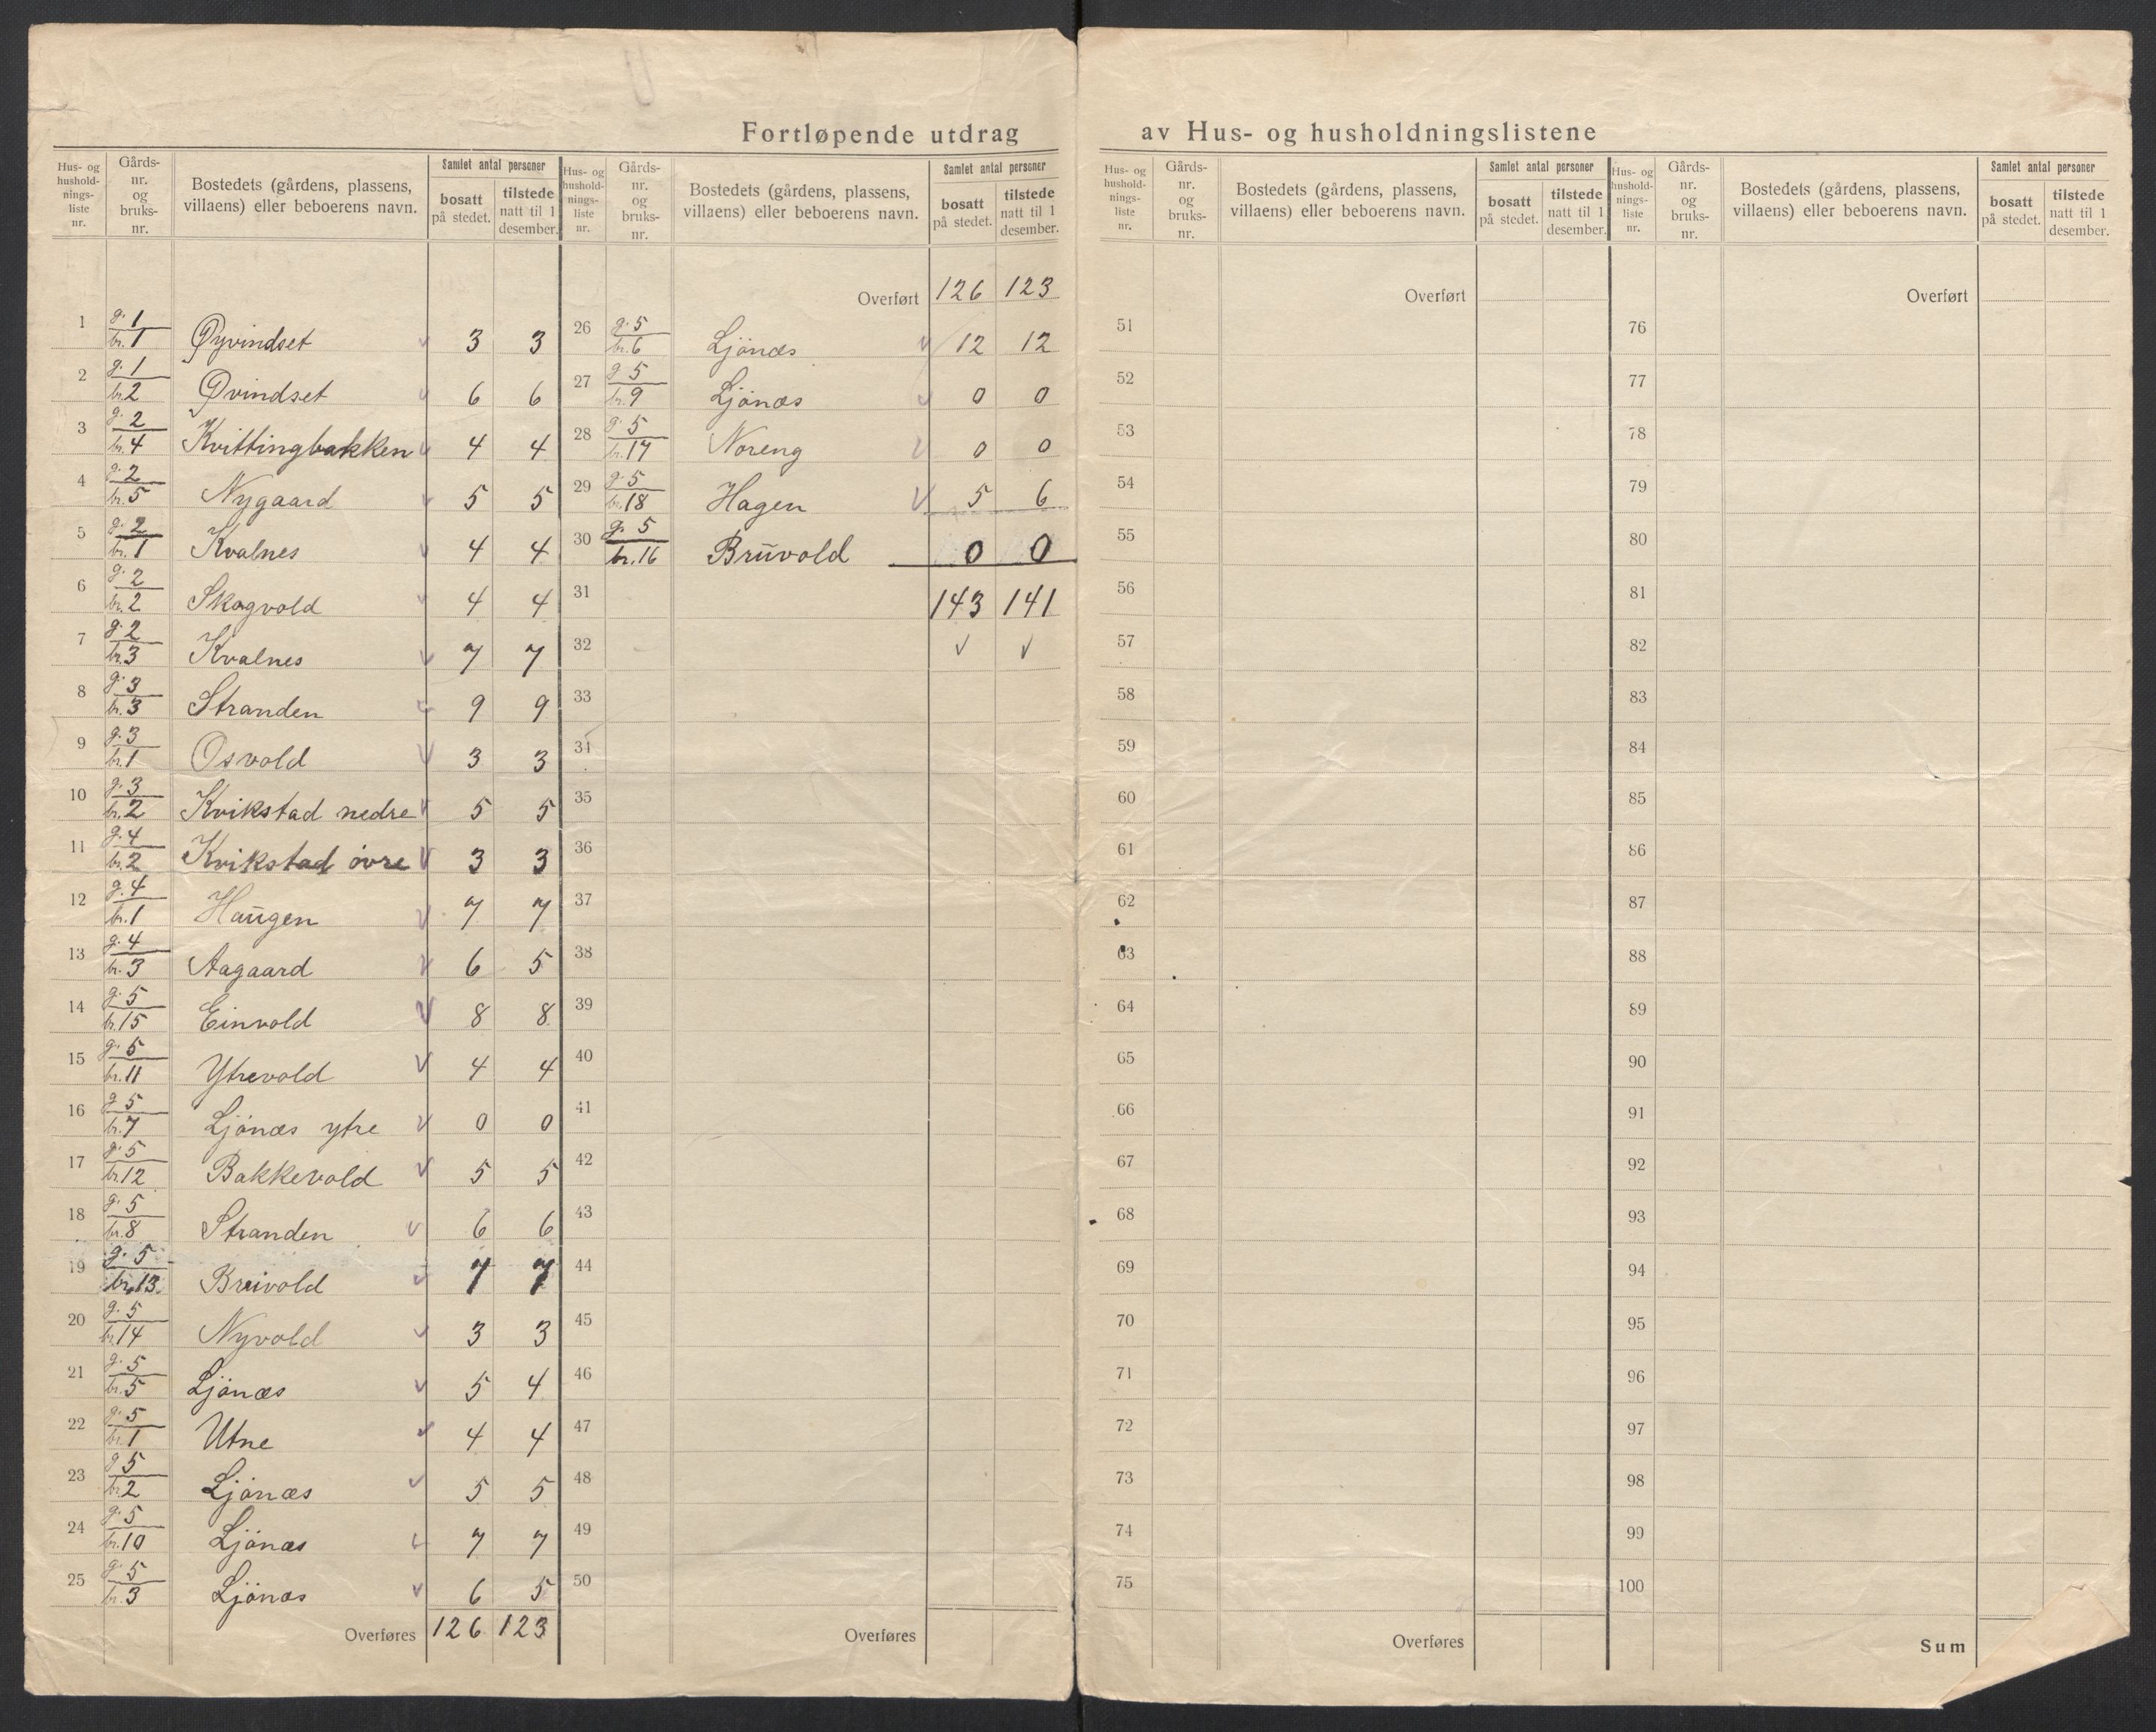 Fortløpende utdrag av Hus- og husholdningslistene
Hus- og hushold-nings-liste nr. | Gårds-nr. og bruks-nr. | Bostedets (gårdens, plassens, villaens) eller beboerens navn. | Samlet antal personer | bosatt på stedet. | tilstede natt til 1 desember.
1 g. 1 br. 1 Øyvindset 3 3
2 g. 1 br. 2 Øvindset 6 6
3 g. 2 br. 4 Kvittingbakken 4 4
4 g. 2 br. 5 Nygaard 5 5
5 g. 2 br. 1 Kvalnes 4 4
6 g. 2 br. 2 Skogvold 4 4
7 g. 2 br. 3 Kvalnes 7 7
8 g. 3 br. 3 Stranden 9 9
9 g. 3 br. 1 Osvold 3 3
10 g. 3 br. 2 Kvikstad nedre 5 5
11 g. 4 br. 2 Kvikstad övre 3 3
12 g. 4 br. 1 Haugen 7 7
13 g. 4 br. 3 Aagaard 6 5
14 g. 5 br. 15 Einvold 8 8
15 g. 5 br. 11 Ytrevold 4 4
16 g. 5 br. 7 Ljönæs ytre 0 0
17 g. 5 br. 12 Bakkevold 5 5
18 g. 5 br. 8 Stranden 6 6
19 g. 5 br. 13 Breivold 7 7
20 g. 5 br. 14 Nyvold 3 3
21 g. 5 br. 5 Ljönæs 5 4
22 g. 5 br. 1 Utne 4 4
23 g. 5 br. 2 Ljönæs 5 5
24 g. 5 br. 10 Ljönæs 7 7
25 g. 5 br. 3 Ljönæs 6 5
Overføres 126 123
Hus- og hushold-nings-liste nr. | Gårds-nr. og bruks-nr. | Bostedets (gårdens, plassens, villaens) eller beboerens navn. | Samlet antal personer | bosatt på stedet. | tilstede natt til 1 desember.
Overført 126 123
26 g. 5 br. 6 Ljönæs 12 12
27 g. 5 br. 9 Ljönæs 0 0
28 g. 5 br. 17 Noreng 0 0
29 g. 5 br. 18 Hagen 5 6
30 g. 5 br. 16 Bruvold 0 0
31 143 141
32
33
34
35
36
37
38
39
40
41
42
43
44
45
46
47
48
49
50
Overføres
Hus- og hushold-nings-liste nr. | Gårds-nr. og bruks-nr. | Bostedets (gårdens, plassens, villaens) eller beboerens navn. | Samlet antal personer | bosatt på stedet. | tilstede natt til 1 desember.
Overført
51
52
53
54
55
56
57
58
59
60
61
62
63
64
65
66
67
68
69
70
71
72
73
74
75
Overføres
Hus- og hushold-nings-liste nr. | Gårds-nr. og bruks-nr. | Bostedets (gårdens, plassens, villaens) eller beboerens navn. | Samlet antal personer | bosatt på stedet. | tilstede natt til 1 desember.
Overført
76
77
78
79
80
81
82
83
84
85
86
87
88
89
90
91
92
93
94
95
96
97
98
99
100
Sum